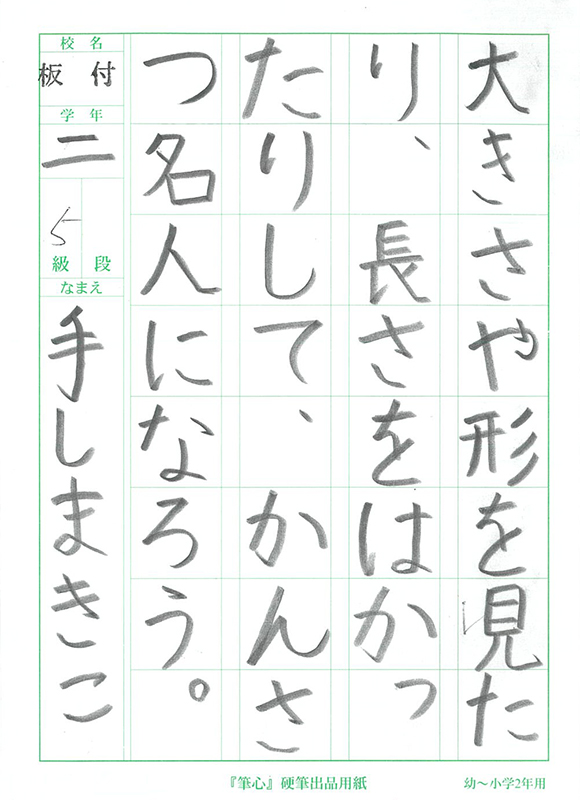 大きさや形を見た
り、長さをはかっ
たりして、かんさ
つ名人になろう。
校名
板付
学年
二
5
級段
なまえ
手しまきこ
『筆心』硬筆出品用紙
幼〜小学2年用